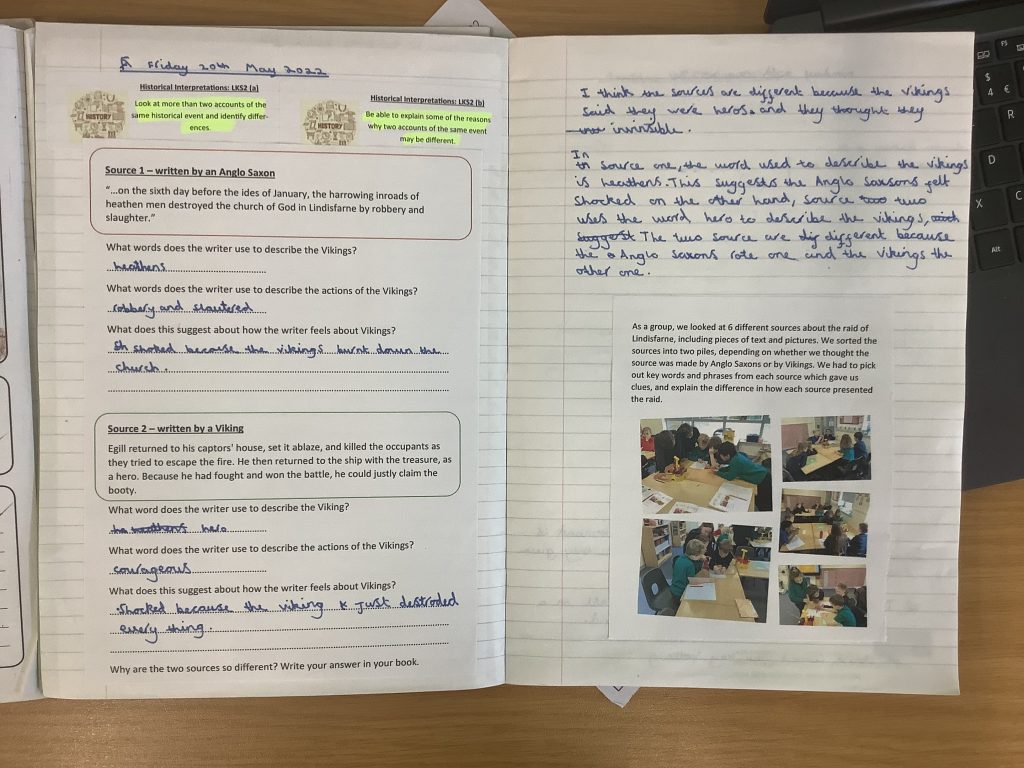 Friday 20th May 2022
Historical Interpretations: LKS2 (a)
Look at more than two accounts of the
same historical event and identify differ-
ences.
HISTORY
Historical Interpretations: LKS2 (b)
Be able to explain some of the reasons
why two accounts of the same event
may be different.
HISTORY
Source 1 – written by an Anglo Saxon
“...on the sixth day before the ides of January, the harrowing inroads of
heathen men destroyed the church of God in Lindisfarne by robbery and
slaughter.”
What words does the writer use to describe the Vikings?
heathens
What words does the writer use to describe the actions of the Vikings?
robbery and slautered
What does this suggest about how the writer feels about Vikings?
shoked because the vikings burnt down the
church.
Source 2 – written by a Viking
Egill returned to his captors' house, set it ablaze, and killed the occupants as
they tried to escape the fire. He then returned to the ship with the treasure, as
a hero. Because he had fought and won the battle, he could justly claim the
booty.
What words does the writer use to describe the Viking?
hero
What word does the writer use to describe the actions of the Vikings?
courageous
What does this suggest about how the writer feels about Vikings?
shocked because the viking just destroded
every thing.
Why are the two sources so different? Write your answer in your book.
I think the sources are different because the vikings
said they were heros. and they thought they
invinsible.
In
source one, the word used to describe the vikings
is heathens. This suggests the Anglo saxsons felt
shocked on the other hand, source two
uses the word hero to describe the vikings,
The two source are different because
the Anglo saxons rote one and the vikings the
other one.
As a group, we looked at 6 different sources about the raid of
Lindisfarne, including pieces of text and pictures. We sorted the
sources into two piles, depending on whether we thought the
source was made by Anglo Saxons or by Vikings. We had to pick
out key words and phrases from each source which gave us
clues, and explain the difference in how each source presented
the raid.
F5
$
4 €
R
D
X
C
Alt